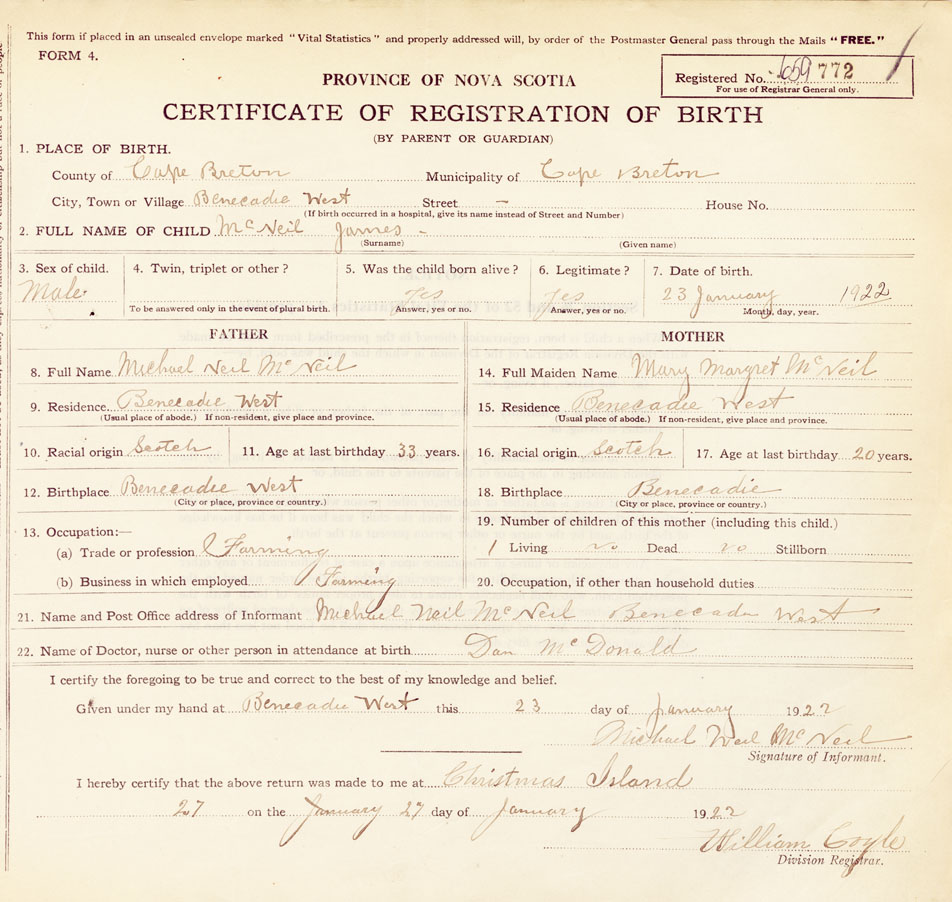 This form if placed in an unsealed envelope marked "Vital Statistics" and properly addressed will, by order of the Postmaster General pass through the Mails "FREE."
FORM 4.
PROVINCE OF NOVA SCOTIA
Registered No. 659 772
For use of Registrar General only.
CERTIFICATE OF REGISTRATION OF BIRTH
(BY PARENT OR GUARDIAN)
1. PLACE OF BIRTH.
County of Cape Breton Municipality of Cape Breton
City, Town or Village Benecadie West Street - House No.
(If birth occurred in a hospital, give its name instead of Street and Number)
2. FULL NAME OF CHILD McNeil James -
(Surname) (Given name)
3. Sex of child. 4. Twin, triplet or other? 5. Was the child born alive? 6. Legitimate? 7. Date of birth.
Male Yes Yes 23 January 1922
To be answered only in the event of plural birth. Answer, yes or no. Answer, yes or no. Month, day, year.
FATHER MOTHER
8. Full Name Michael Neil McNeil 14. Full Maiden Name Mary Margret McNeil
9. Residence Benecadie West 15. Residence Benecadie West
(Usual place of abode.) If non-resident, give place and province. (Usual place of abode.) If non-resident, give place and province.
10. Racial origin Scotch 11. Age at last birthday 33 years. 16. Racial origin Scotch 17. Age at last birthday 20 years.
12. Birthplace Benecadie West 18. Birthplace Benecadie
(City or place, province or country.) (City or place, province or country.)
13. Occupation:— 19. Number of children of this mother (including this child.)
(a) Trade or profession Farming 1 Living no Dead no Stillborn
(b) Business in which employed Farming 20. Occupation, if other than household duties
21. Name and Post Office address of Informant Michael Neil McNeil Benecadie West
22. Name of Doctor, nurse or other person in attendance at birth Dan McDonald
I certify the foregoing to be true and correct to the best of my knowledge and belief.
Given under my hand at Benecadie West this 23 day of January 1922
Michael Neil McNeil
Signature of Informant.
I hereby certify that the above return was made to me at Christmas Island
27 on the January 27 day of January 1922
William Coyle
Division Registrar.